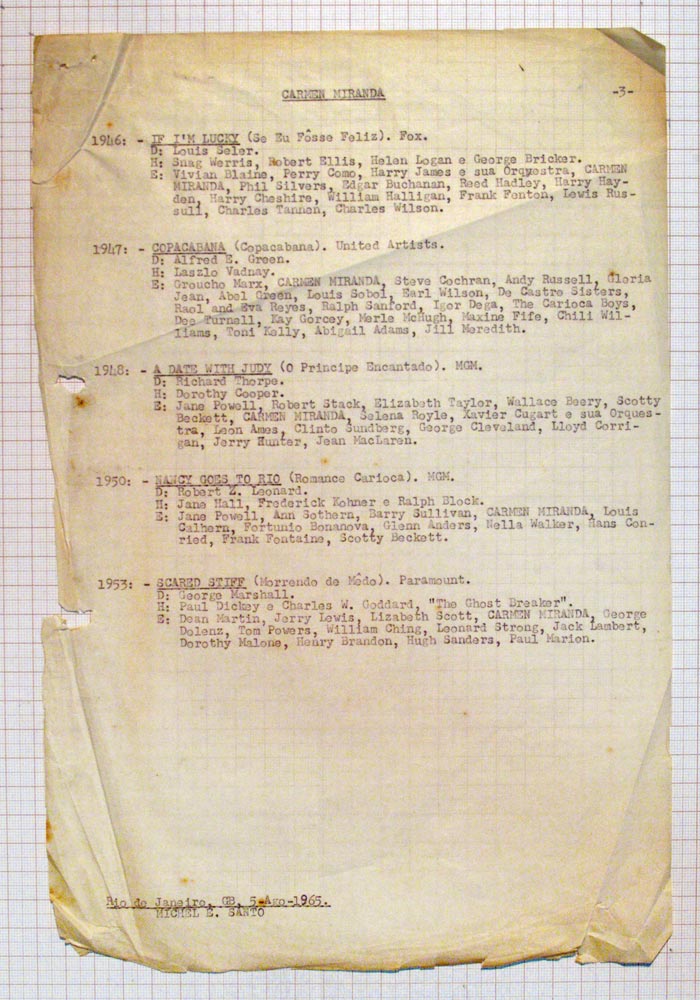 CARMEN MIRANDA -3-
1946: - IF I'M LUCKY (Se Eu Fôsse Feliz). Fox.
D: Louis Seler.
H: Snag Werris, Robert Ellis, Helen Logan e George Bricker.
E: Vivian Blaine, Perry Como, Harry James e sua Orquestra, CARMEN
MIRANDA, Phil Silvers, Edgar Buchanan, Reed Hadley, Harry Hay-
den, Harry Cheshire, William Halligan, Frank Fenton, Lewis Rus-
sull, Charles Tannen, Charles Wilson.
1947: - COPACABANA (Copacabana). United Artists.
D: Alfred E. Green.
H: Laszlo Vadnay.
E: Groucho Marx, CARMEN MIRANDA, Steve Cochran, Andy Russell, Gloria
Jean, Abel Green, Louis Sobol, Earl Wilson, De Castro Sisters,
Raol and Eva Reyes, Ralph Sanford, Igor Dega, The Carioca Boys,
Dee Turnell, Kay Gorcey, Merle McHugh, Maxine Fife, Chili Wil-
liams, Toni Kelly, Abigail Adams, Jill Meredith.
1948: - A DATE WITH JUDY (O Principe Encantado). MGM.
D: Richard Thorpe.
H: Dorothy Cooper.
E: Jane Powell, Robert Stack, Elizabeth Taylor, Wallace Beery, Scotty
Beckett, CARMEN MIRANDA, Selena Royle, Xavier Cugart e sua Orques-
tra, Leon Ames, Clinto Sundberg, George Cleveland, Lloyd Corri-
gan, Jerry Hunter, Jean MacLaren.
1950: - NANCY GOES TO RIO (Romance Carioca). MGM.
D: Robert Z. Leonard.
H: Jane Hall, Frederick Kohner e Ralph Block.
E: Jane Powell, Ann Sothern, Barry Sullivan, CARMEN MIRANDA, Louis
Calhern, Fortunio Bonanova, Glenn Anders, Nella Walker, Hans Con-
ried, Frank Fontaine, Scotty Beckett.
1953: - SCARED STIFF (Morrendo de Mêdo). Paramount.
D: George Marshall.
H: Paul Dickey e Charles W. Goddard, "The Ghost Breaker".
E: Dean Martin, Jerry Lewis, Lizabeth Scott, CARMEN MIRANDA, George
Dolenz, Tom Powers, William Ching, Leonard Strong, Jack Lambert,
Dorothy Malone, Henry Brandon, Hugh Sanders, Paul Marion.
Rio de Janeiro, GB, 5-Ago-1965.
MICHEL E. SANTO